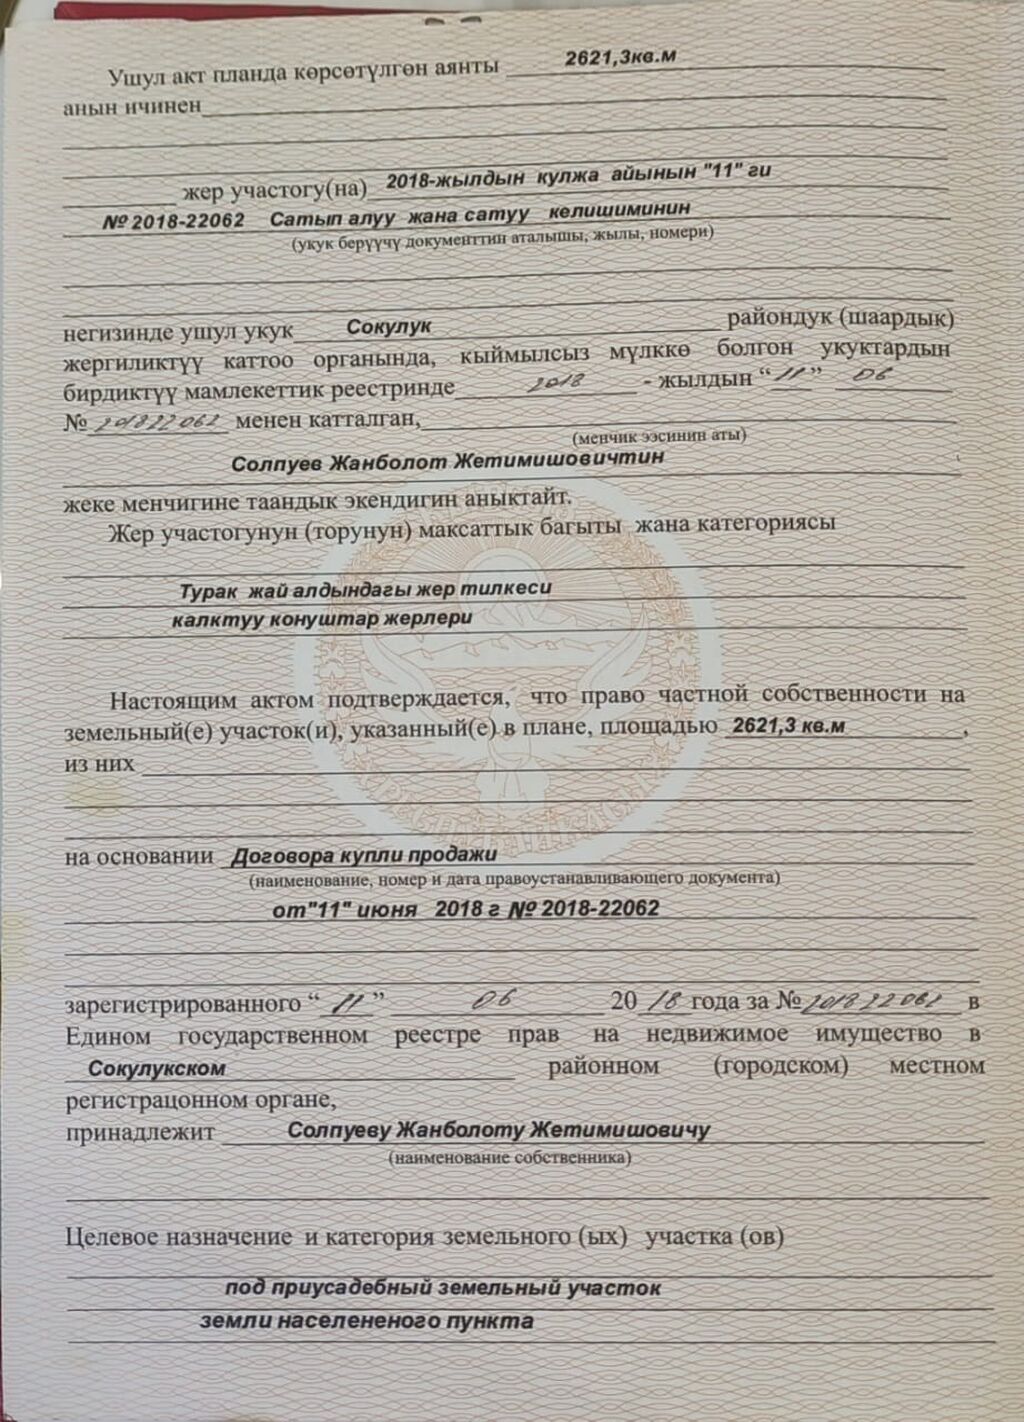 Ушул акт планда көрсөтүлгөн аянты 2621,3кв.м
анын ичинен
жер участогу(на) 2018-жылдын кулжа айынын "11" ги
№ 2018-22062 Сатып алуу жана сатуу келишиминин
(укук берүүчү документтин аталышы, жылы, номери)
негизинде ушул укук Сокулук райондук (шаардык)
жергиликтүү каттоо органында, кыймылсыз мүлккө болгон укуктардын
бирдиктүү мамлекеттик реестринде 2018 - жылдын “ 11 ” 06
№ 201822062 менен катталган,
(менчик ээсинин аты)
Солпуев Жанболот Жетимишовичтин
жеке менчигине таандык экендигин аныктайт.
Жер участогунун (торунун) максаттык багыты жана категориясы
Турак жай алдындагы жер тилкеси
калктуу конуштар жерлери
Настоящим актом подтверждается, что право частной собственности на
земельный(е) участок(и), указанный(е) в плане, площадью 2621,3 кв.м,
из них
на основании Договора купли продажи
(наименование, номер и дата правоустанавливающего документа)
от"11" июня 2018 г № 2018-22062
зарегистрированного “ 11 ” 06 20 18 года за № 201822062 в
Едином государственном реестре прав на недвижимое имущество в
Сокулукском районном (городском) местном
регистрацонном органе,
принадлежит Солпуеву Жанболоту Жетимишовичу
(наименование собственника)
Целевое назначение и категория земельного (ых) участка (ов)
под приусадебный земельный участок
земли населененого пункта